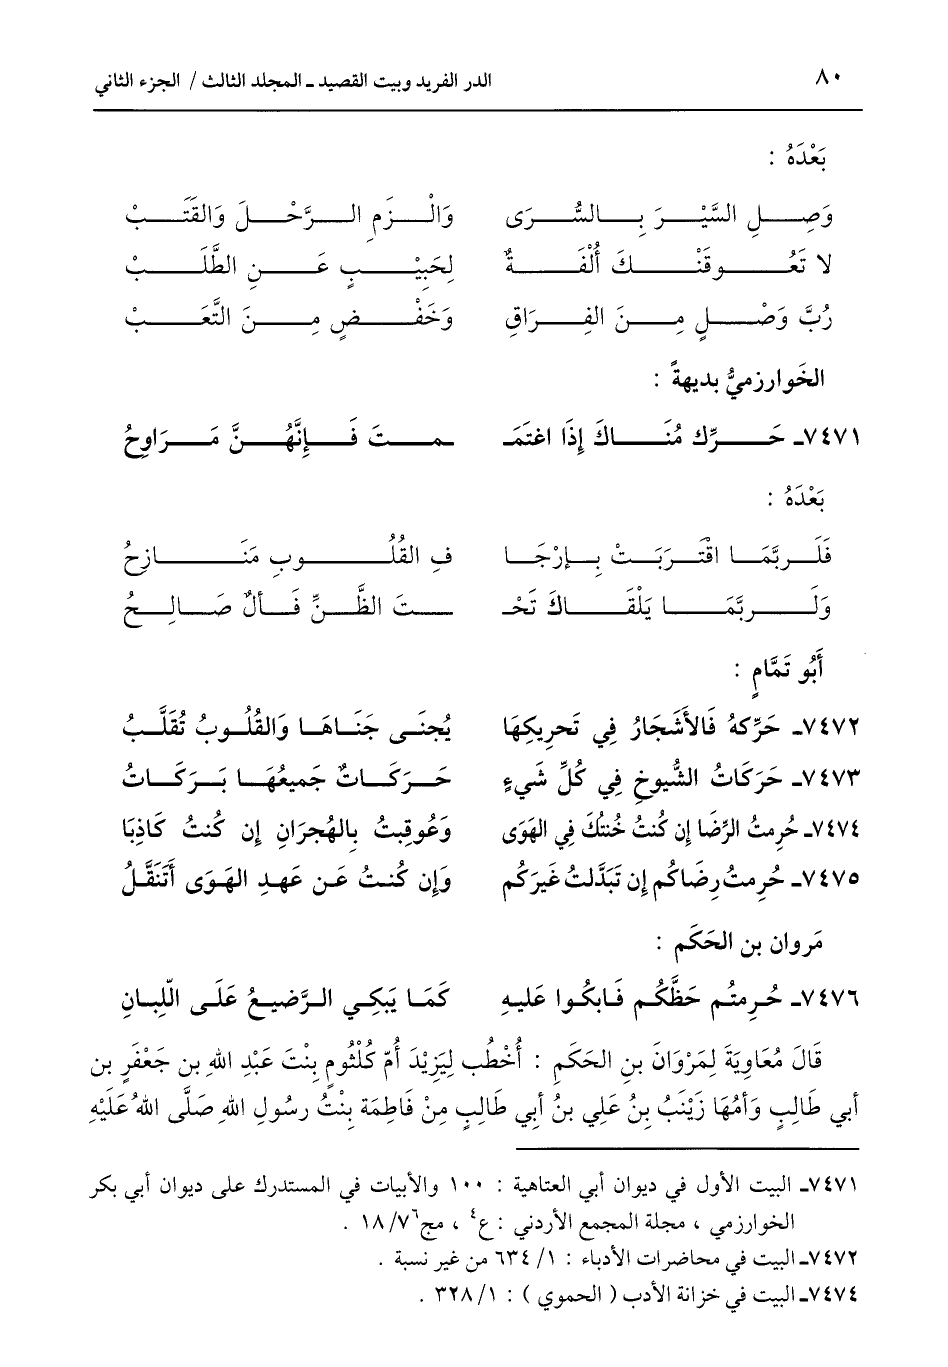 ٨٠ الدر الفريد وبيت القصيد ـ المجلد الثالث / الجزء الثاني
بَعْدَهُ :
وَصِلِ السَّيْرَ بِالسُّرَى وَالْزَمِ الرَّحْلَ وَالقَتَبْ
لا تَعُوقَنْكَ أُلْفَةٌ لِحَبِيْبٍ عَنِ الطَّلَبْ
رُبَّ وَصْلٍ مِنَ الفِرَاقِ وَخَفْضٍ مِنَ التَّعَبْ
الخَوارزميُّ بديهةً :
٧٤٧١ـ حَرِّك مُنَاكَ إِذَا اغتَمَـ ـمتَ فَإِنَّهُنَّ مَرَاوِحُ
بَعْدَهُ :
فَلَربَّمَا اقْتَرَبَتْ بِإِرْجَا فِ القُلُوبِ مَنَازِحُ
وَلَربَّمَا يَلْقَاكَ تَحْـ ـتَ الظَّنِّ فَألٌ صَالِحُ
أَبُو تَمَّامٍ :
٧٤٧٢ـ حَرِّكهُ فَالأَشَجَارُ فِي تَحرِيكِهَا يُجنَى جَنَاهَا وَالقُلُوبُ تُقَلَّبُ
٧٤٧٣ـ حَرَكَاتُ الشُّيوخِ فِي كُلِّ شَيءٍ حَرَكَاتٌ جَمِيعُهَا بَرَكَاتُ
٧٤٧٤ـ حُرِمتُ الرِّضَا إِن كُنتُ خُنتُكَ فِي الهَوَى وَعُوقِبتُ بِالهُجرَانِ إِن كُنتُ كَاذِبَا
٧٤٧٥ـ حُرِمتُ رِضَاكُم إِن تَبَدَّلتُ غَيرَكُم وَإِن كُنتُ عَن عَهدِ الهَوَى أَتَنَقَّلُ
مَروان بن الحَكَم :
٧٤٧٦ـ حُرِمتُم حَظَّكُم فَابكُوا عَليهِ كَمَا يَبكِي الرَّضيعُ عَلَى اللِّبانِ
قَالَ مُعَاوِيَةَ لِمَرْوَانَ بنِ الحَكَمِ : أُخْطُب لِيَزِيْدَ أُمّ كُلْثُومٍ بِنْتَ عَبْدِ اللهِ بن جَعْفَرٍ بن
أبي طَالِبٍ وَأمُهَا زَيْنَبُ بنُ عَلي بنُ أبي طَالِبٍ مِنْ فَاطِمَة بِنْتُ رسُولِ اللهِ صَلَّى اللهُ عَلَيْهِ
٧٤٧١ـ البيت الأول في ديوان أبي العتاهية : ١٠٠ والأبيات في المستدرك على ديوان أبي بكر
الخوارزمي ، مجلة المجمع الأردني : ع٤ ، مج٧٦/ ١٨ .
٧٤٧٢ـ البيت في محاضرات الأدباء : ١/ ٦٣٤ من غير نسبة .
٧٤٧٤ـ البيت في خزانة الأدب ( الحموي ) : ١/ ٣٢٨ .